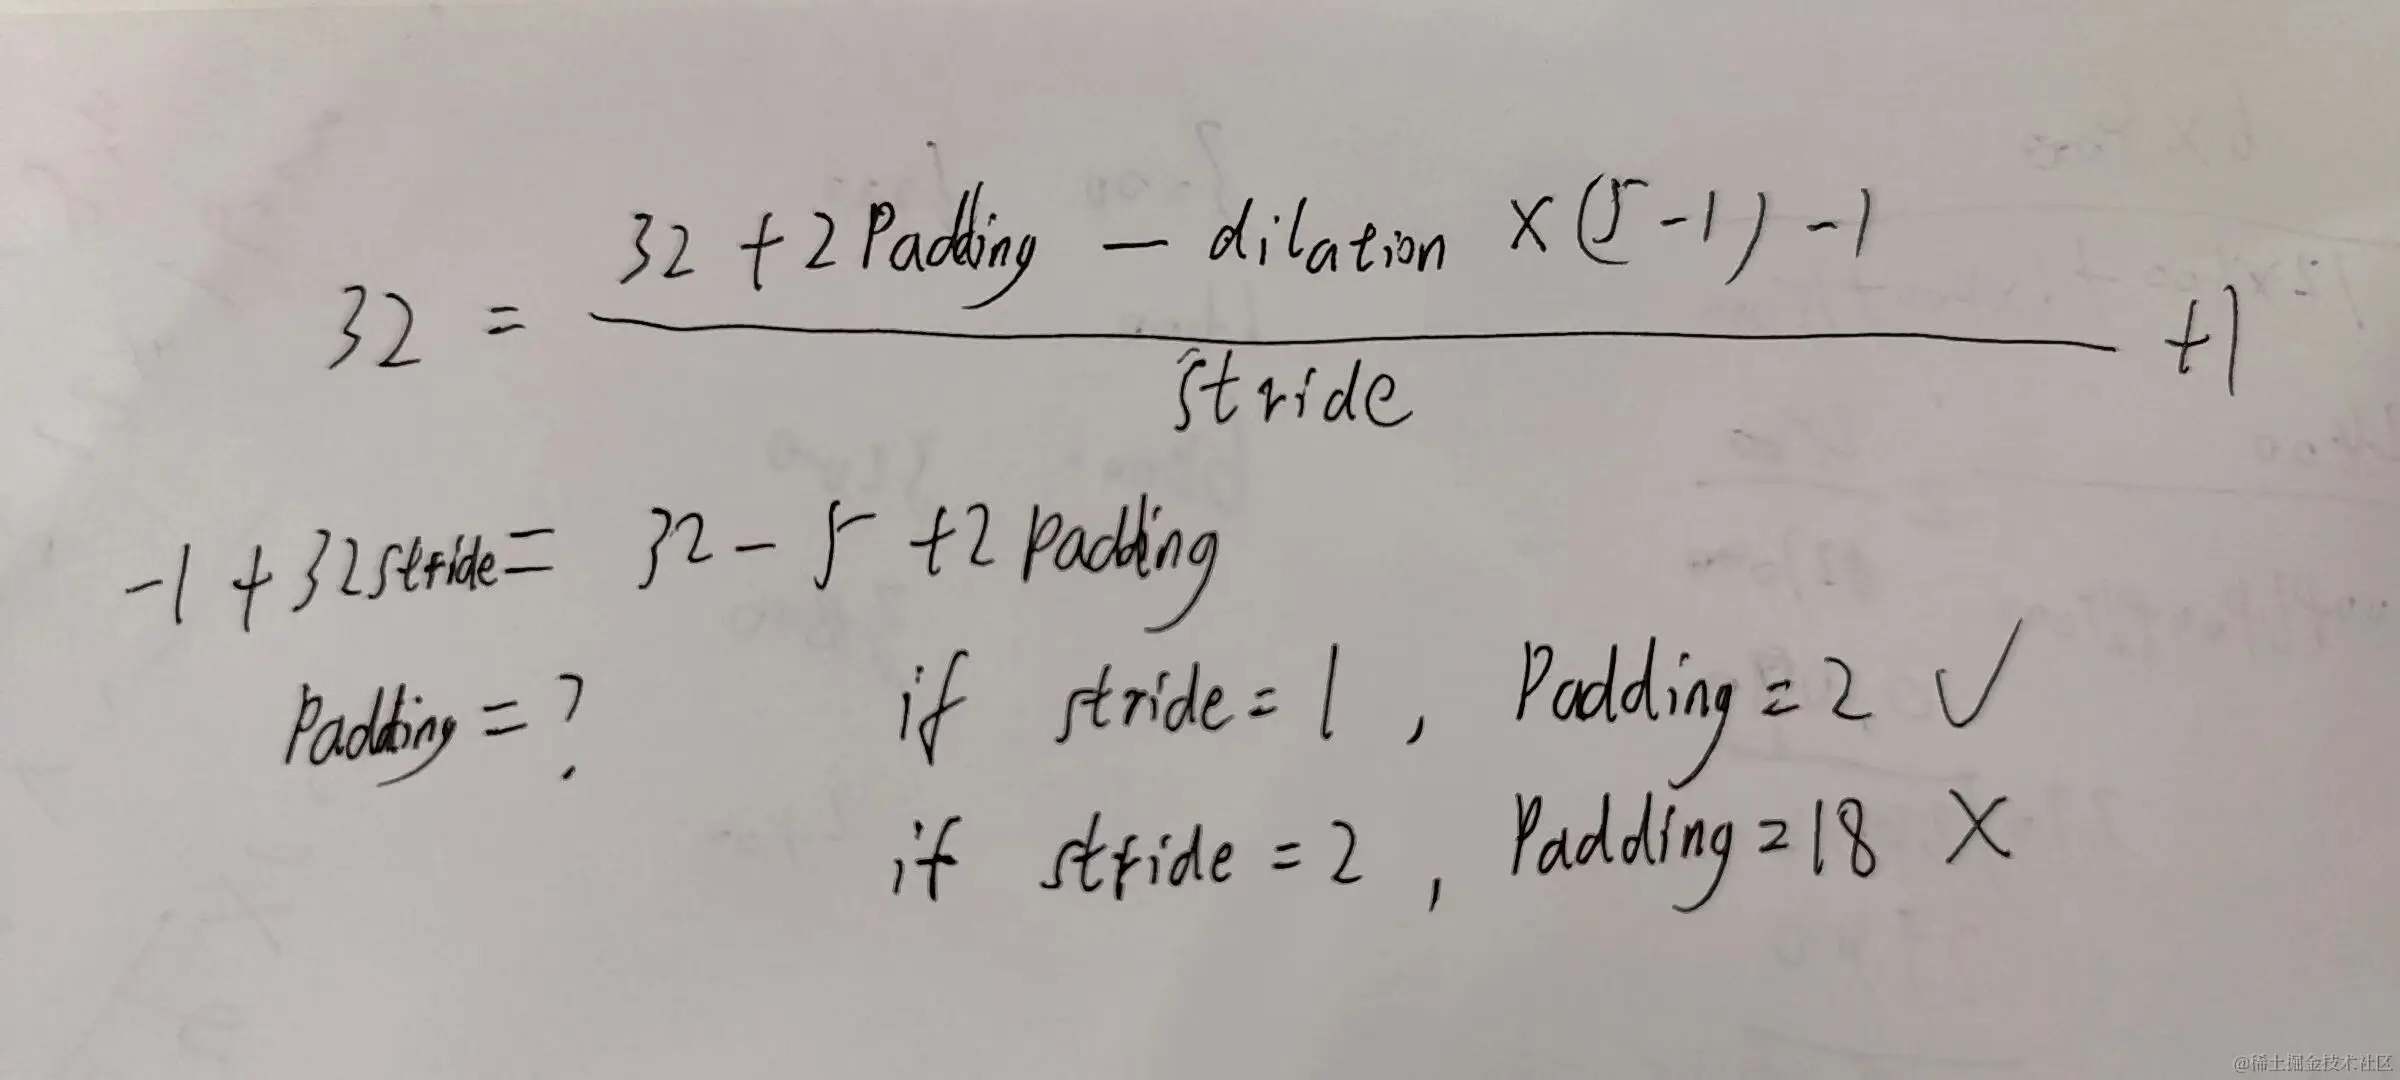 32 = (32 + 2Padding - dilation × (5-1) - 1) / stride + 1
-1 + 32stride = 32 - 5 + 2Padding
Padding = ? if stride = 1, Padding = 2 ✓
if stride = 2, Padding = 18 ×
@稀土掘金技术社区